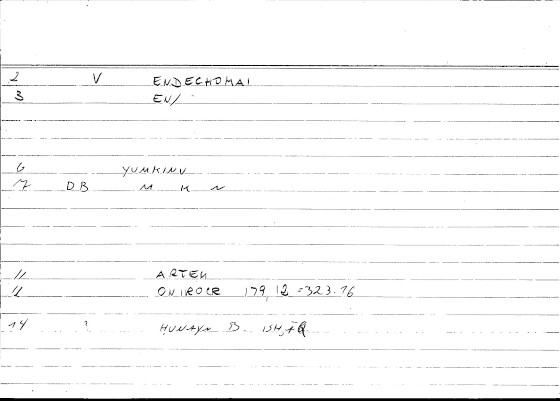 2 V ENDECHOMAI
3 EN/
6 YUMKINU
7 DB M K N
11 ARTEM
12 ONIROCR 179, 12 = 323.16
14 HUNAYN B. ISḤĀQ